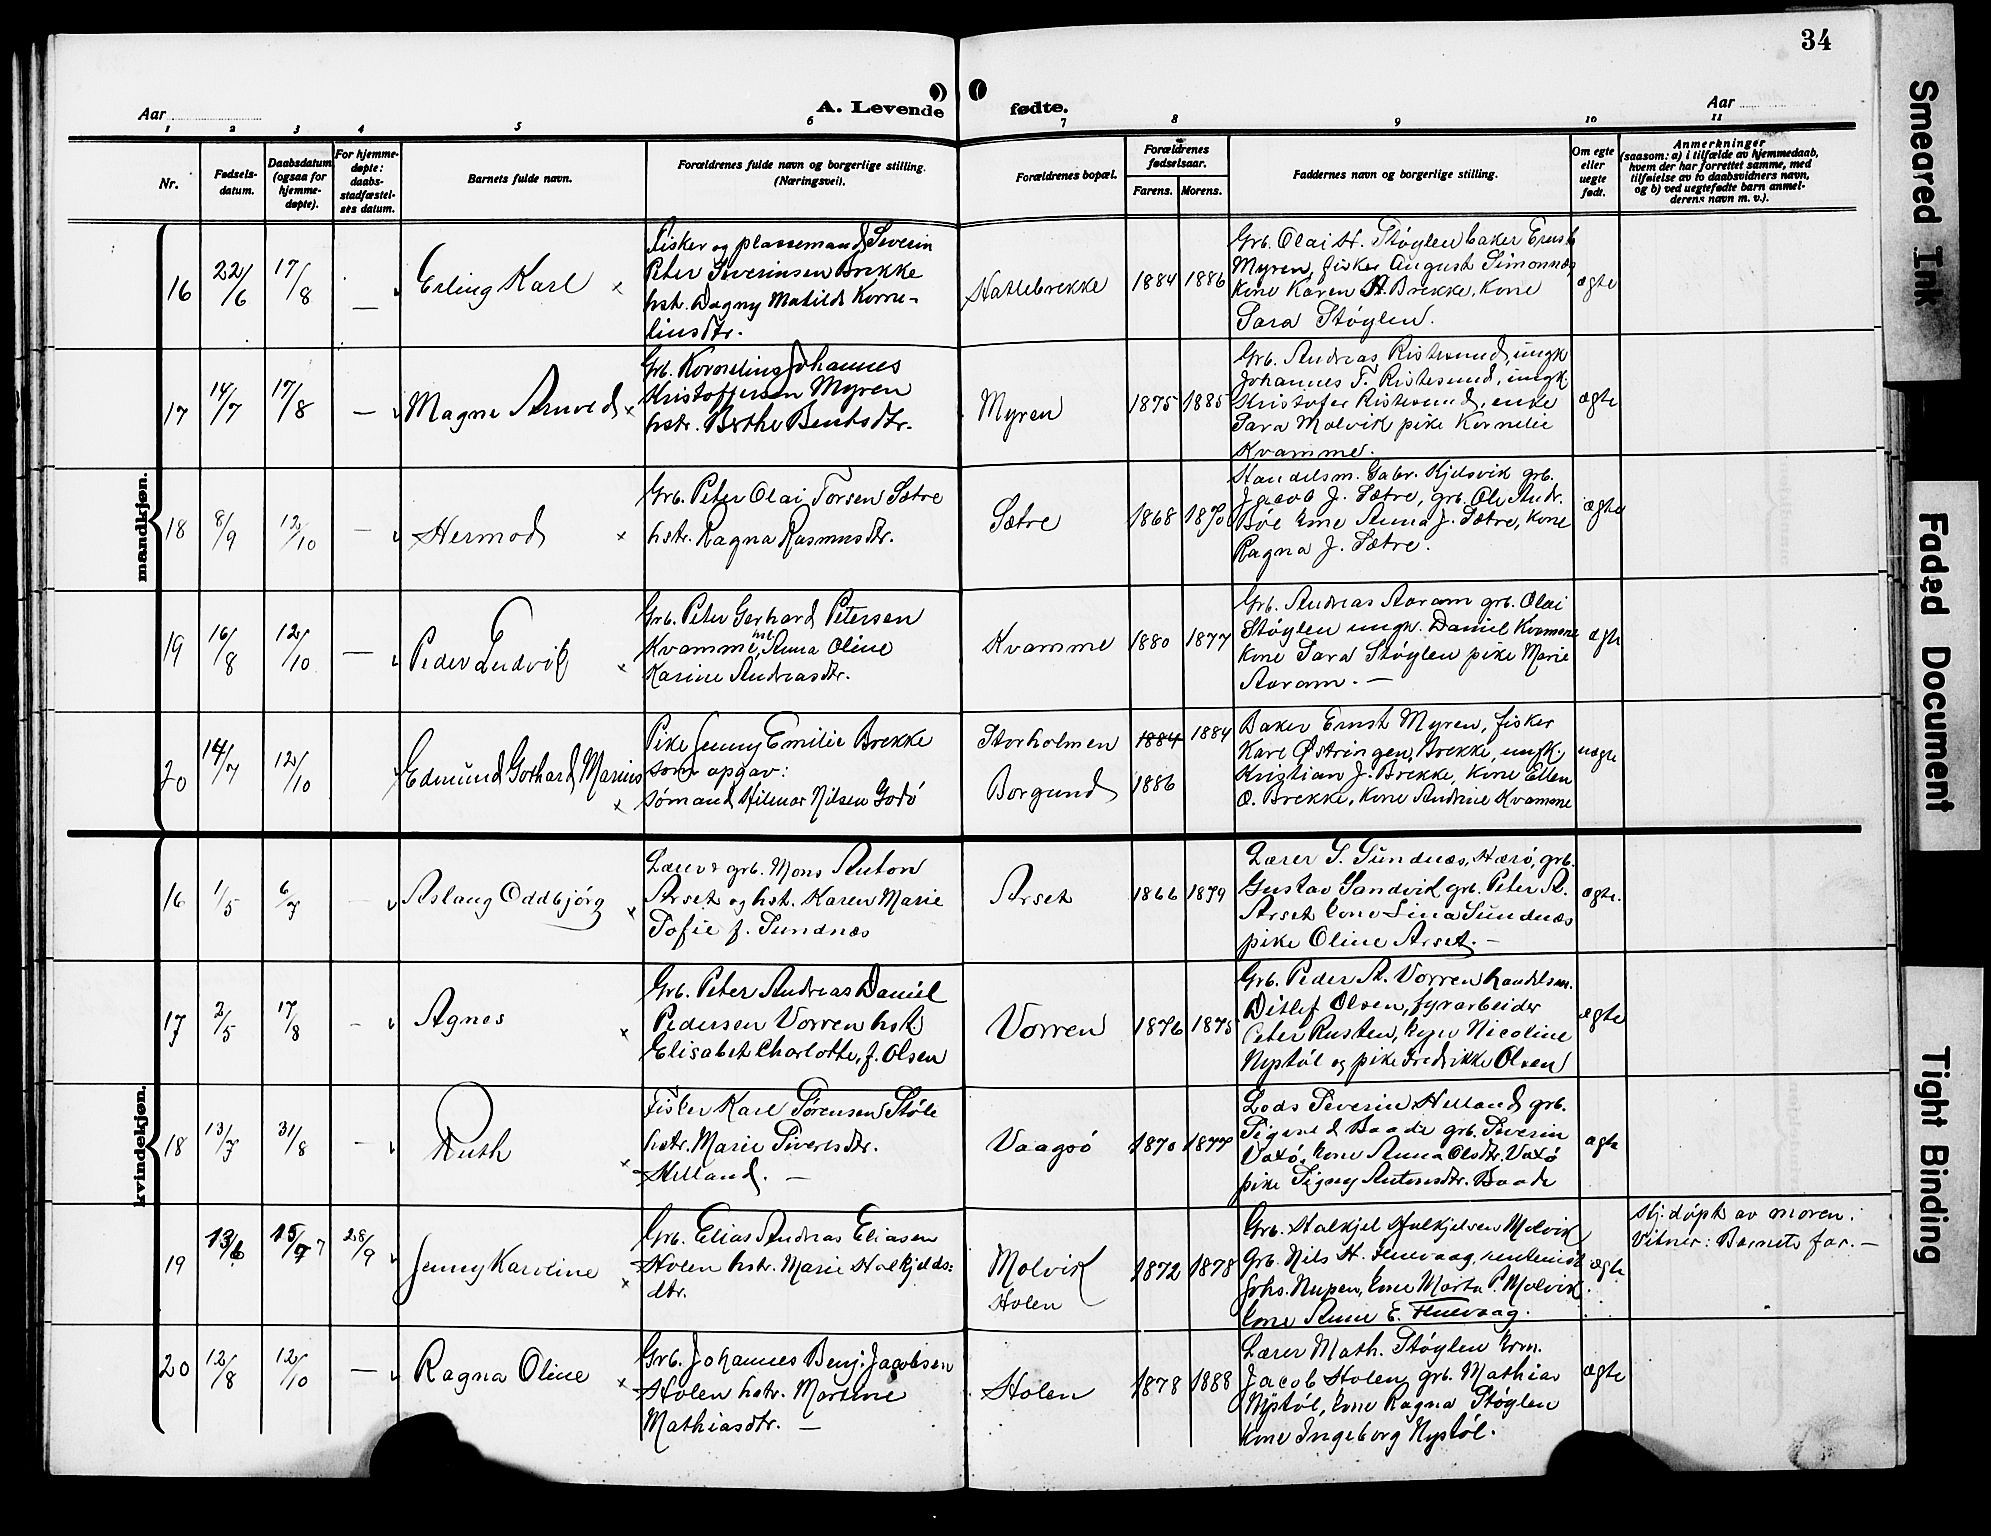 34
Aar
A. Levende fødte.
Aar
1 2 3 4 5 6 7 8 9 10 11
Nr.
Fødsels-
datum.
Daabsdatum
(ogsaa for
hjemme-
døpte).
For hjemme-
døpte:
daabs-
stadfæstel-
ses datum.
Barnets fulde navn.
Forældrenes fulde navn og borgerlige stilling.
(Næringsvei).
Forældrenes bopæl.
Forældrenes
fødselsaar.
Farens. Morens.
Faddernes navn og borgerlige stilling.
Om egte
eller
uegte
født.
Anmerkninger
(saasom: a) i tilfælde av hjemmedaab,
hvem der har forrettet samme, med
tilføielse av to daabsvidners navn,
og b) ved uegtefødte barn anmel-
derens navn m. v.).
mandkjøn.
16 22/6 17/8 — Erling Karl ×
Fisker og plassemand Severin
Peter Severinsen Brekke
hstr. Dagny Matilde Korne-
liusdtr.
Hatlebrekke 1884 1886
Grb. Olai H. Støylen baker Ernst
Myren, fisker August Simonnæs,
kone Karen A. Brekke, kone
Sara Støylen.
ægte
17 14/7 17/8 — Magne Arnved ×
Grb. Johannes
Kristoffersen Myren
hstr. Berthe Bentsdtr.
Myren 1875 1885
Grb. Andreas Ristesund, ungk
Johannes T. Ristesund, ungk.
Kristofer Ristesund, enke
Sara Molvik pike Kornelie
Kvamme.
ægte
18 8/9 12/10 — Hermod ×
Grb. Peter Olai Torsen Sætre
hstr. Ragna Rasmusdtr.
Sætre 1868 1870
Handelsm. Gabr. Kjelsvik grb.
Jacob J. Sætre, grb. Ole Andr.
Bøe kone Anna J. Sætre, kone
Ragna J. Sætre.
ægte
19 16/8 12/10 — Peder Ludvik ×
Grb. Peter Gerhard Petersen
Kvamme, hst. Anna Oline
Karine Andreasdtr.
Kvamme 1880 1877
Grb. Andreas Aaram grb. Olai
Støylen ungk. Daniel Kvamme
kone Sara Støylen pike Marie
Aaram. —
ægte
20 14/7 12/10 Edmund Gothard Marius ×
Pike Jenny Emilie Brekke
som opgav:
sømand Hilmar Nilsen Godø
Storholmen 1884 1884
Borgund 1886
Baker Ernst Myren, fisker
Karl Østringen, Brekke, ungk.
Kristian J. Brekke, kone Ellen
O. Brekke, kone Andrine Kvamme
uægte
kvindekjøn.
16 1/5 6/7 — Aslaug Oddbjørg ×
Lærer grb. Mons Anton
Arset og hst. Karen Marie
Sofie f. Sundnæs
Arset 1866 1879
Lærer S. Sundnæs, Harø, grb.
Gustav Sandvik grb. Peter A.
Arset kone Lina Sundnæs
pike Oline Arset. —
ægte.
17 2/5 17/8 — Agnes ×
Grb. Peter Andreas Daniel
Pedersen Vorren hst.
Elisabet Charlotte, f. Olsen
Vorren 1876 1875
Grb. Peder A. Vorren handelsm.
Ditlef Olsen, fyrarbeider
Peter Rusten, Nicoline
Nystøl og pike Fredrikke Olsen
ægte
18 13/7 31/8 — Ruth ×
Fisker Karl Sørensen Støle
hstr. Marie Sivertsdtr.
Helland. —
Vaagsø 1870 1877
Lods Severin Helland grb.
Baade grb. Severin
Vaxø, kone Anna Olsdtr. Vaxø
pike Signy Antonsdtr. Baade
ægte
19 13/6 15/7 7 28/9 Jenny Karoline ×
Grb. Elias Andreas Eliasen
Holen hstr. Marie Halkjelds-
dtr.
Molvik
Holen
1872 1878
Grb. Halkjel Halkjelsen Molvik
Grb. Nils H. Fluevaag,
Johs. Nupen, kone Marta P. Molvik
kone Anne E. Fluevaag.
ægte.
Hj. døpt av moren.
Vitner: Barnets far. —
20 12/8 12/10 — Ragna Oline ×
Grb. Johannes Benj. Jacobsen
Holen hstr. Martine
Mathiasdtr. —
Holen 1878 1888
Lærer Math. Støylen
Jacob Holen, grb. Mathias
Nystøl, kone Ragna Støylen
kone Ingeborg Nystøl.
ægte
Smeared Ink
Faded Document
Tight Binding